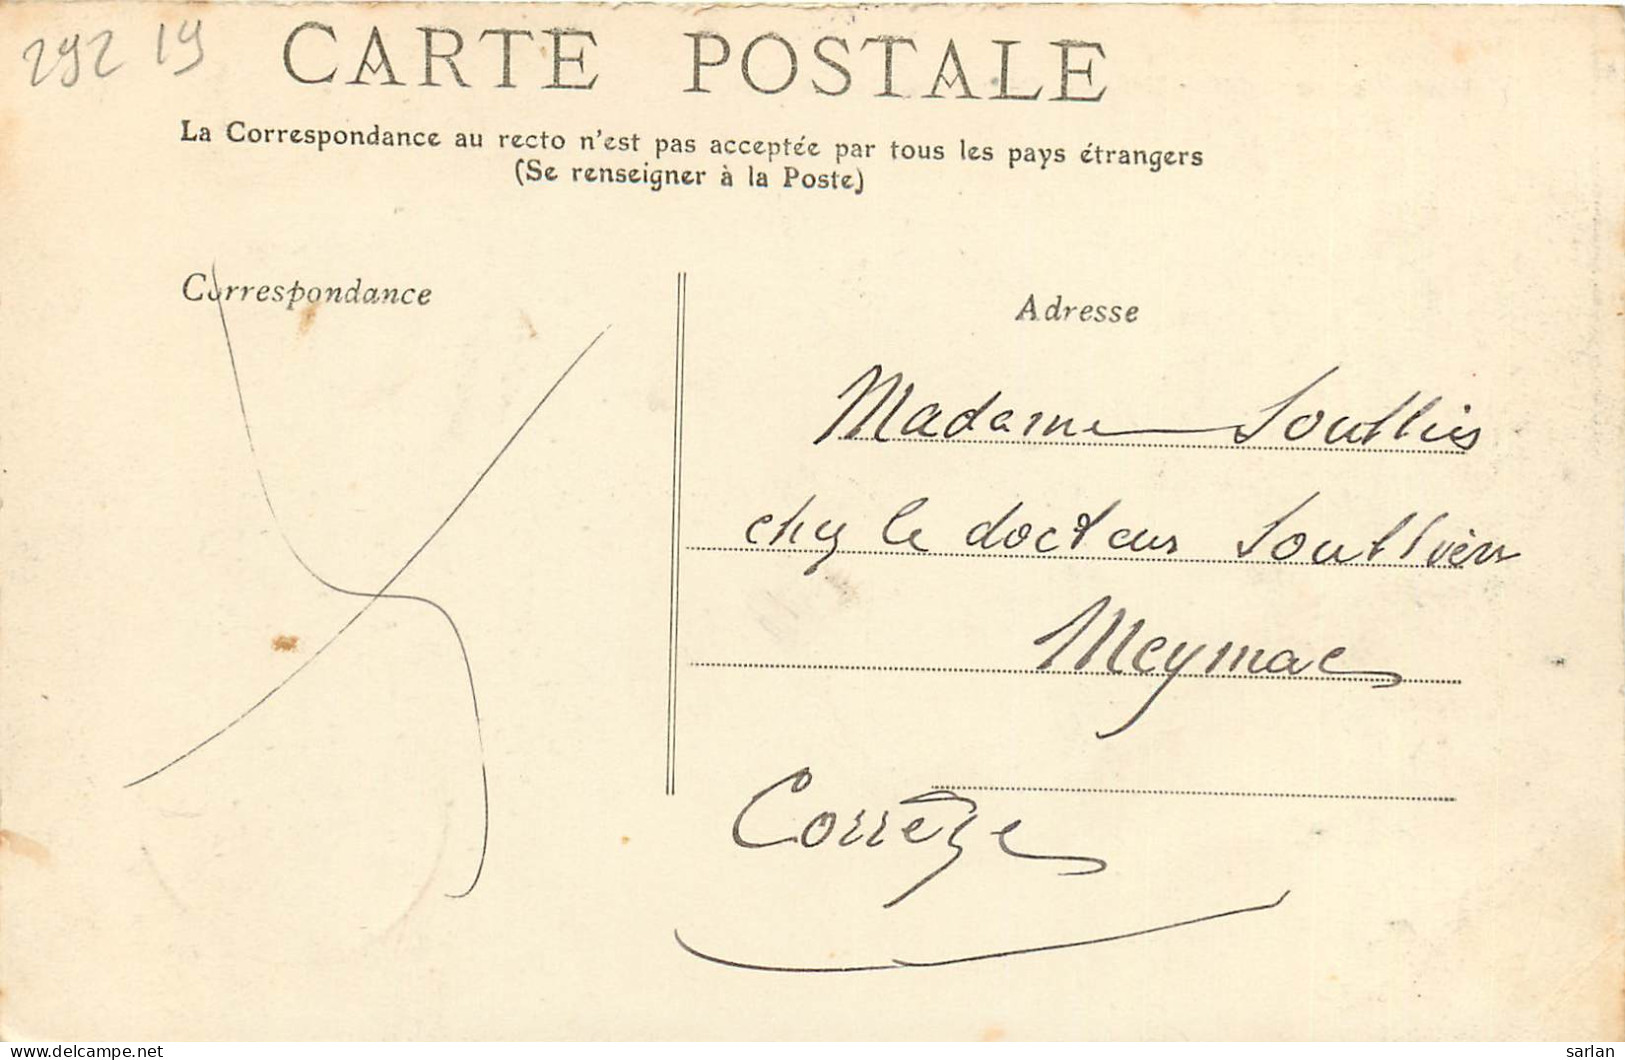 292 19
CARTE POSTALE
La Correspondance au recto n'est pas acceptée par tous les pays étrangers
(Se renseigner à la Poste)
Correspondance
Adresse
Madame
chez le docteur
Meymac
Corrèze
www.delcampe.net
sarlan